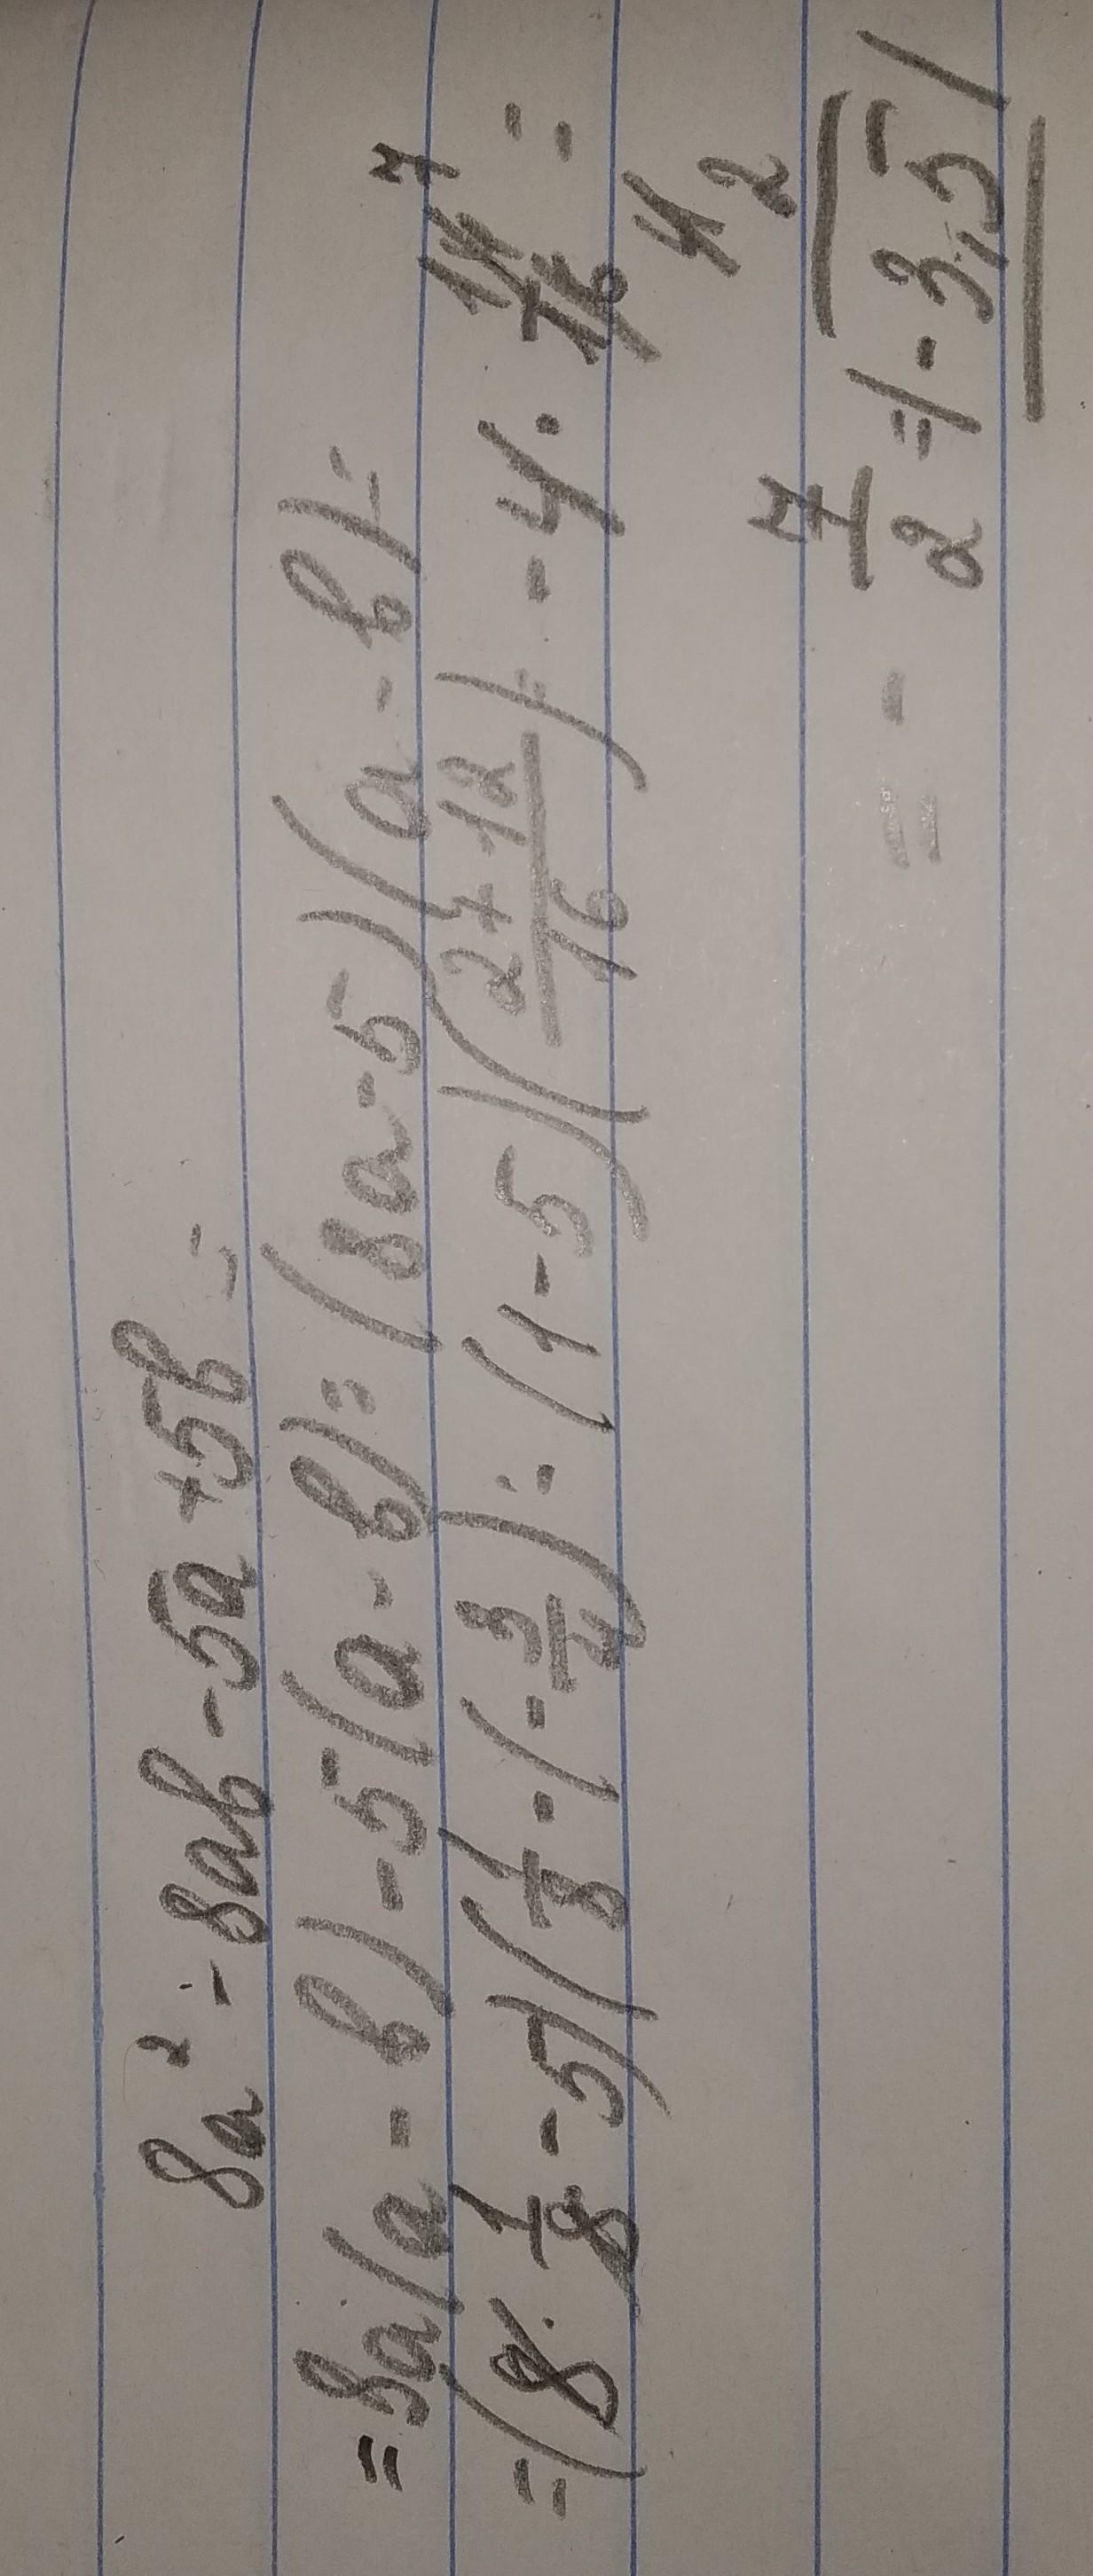 8a² - 8ab - 5a + 5b =
= 8a(a - b) - 5(a - b) = (8a - 5)(a - b) =
= (8 · 1/8 - 5)(1/8 · (-3/4)) = (1 - 5)(2 + 12/16) = -4 · 14/16 =
7
4 2
= - 7/2 = (-3,5)